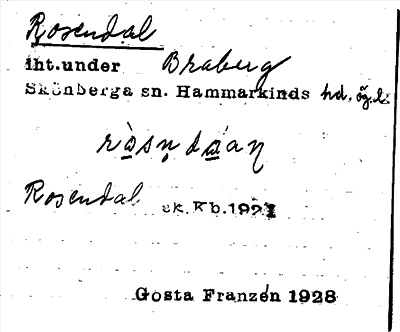 Rosendal
lht.under Braberg
Skönberga sn. Hammarkinds hd. ög.l.
ròsṇdáaṇ
Rosendal sk. Kb.1921
Gosta Franzén 1928